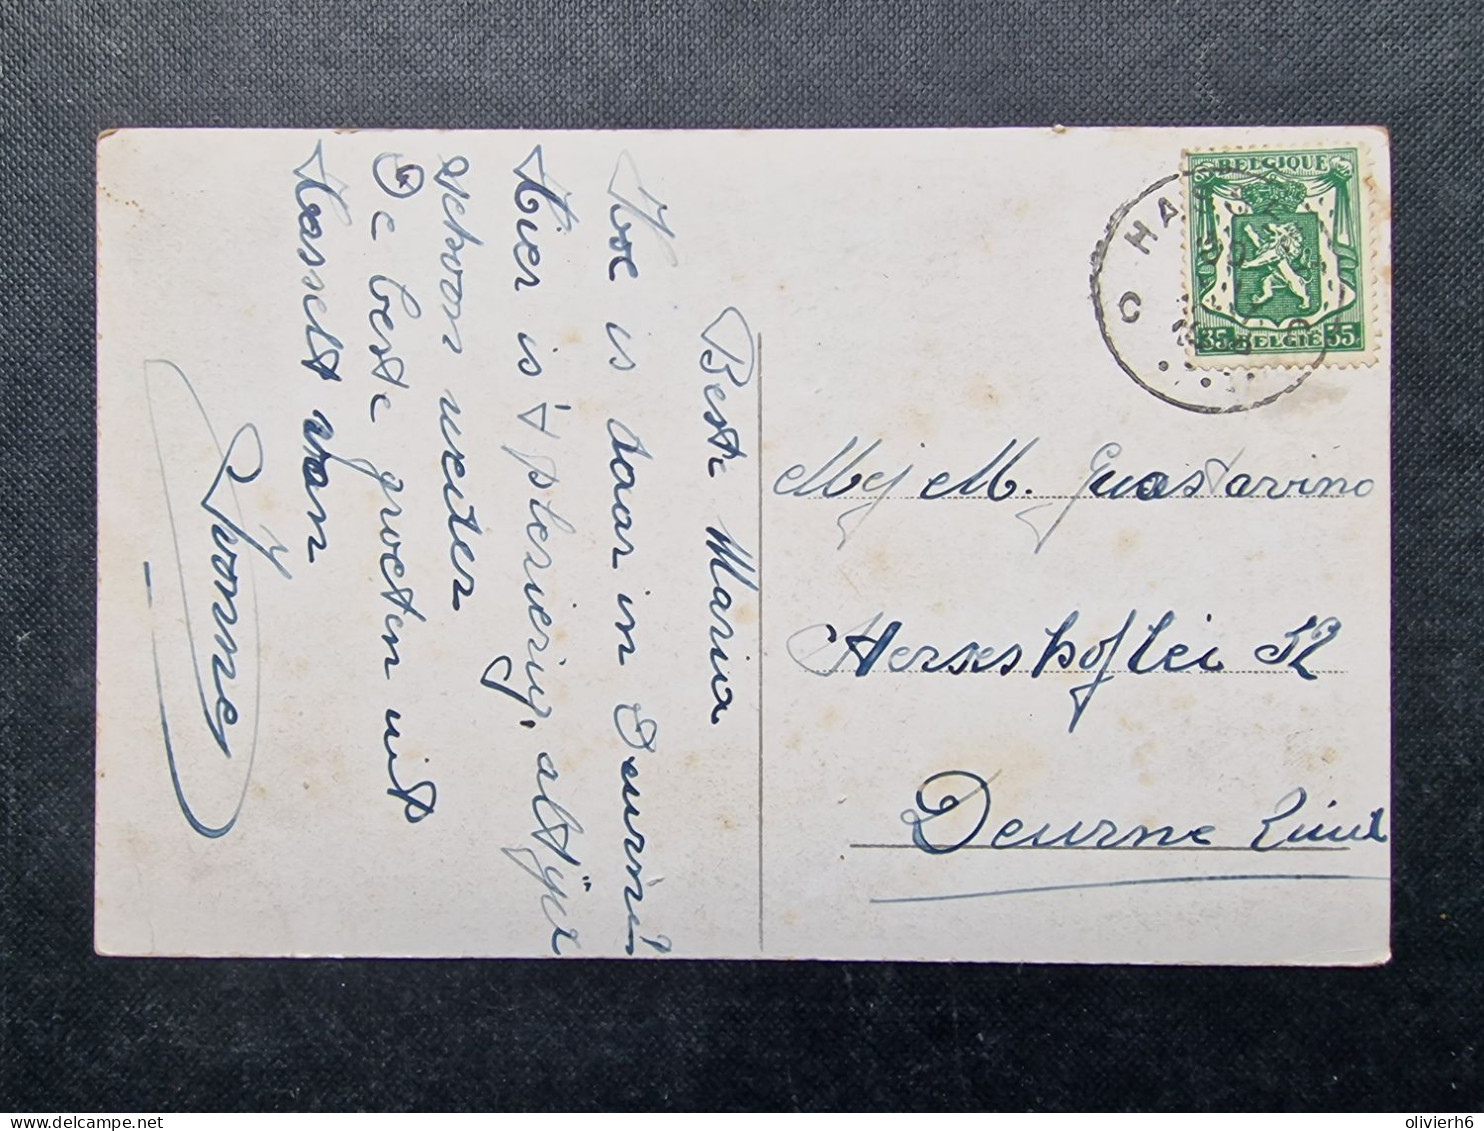 Beste Maria
Hoe is daar in Deurne
Hier is 't plezierig, altijd
schoon weder
De beste groeten uit
Hasselt van
Yvonne
BELGIQUE
35 BELGIË 35
HAS
Mej M. Guastavino
Herseshoflei 52
Deurne Zuid
olivierh6